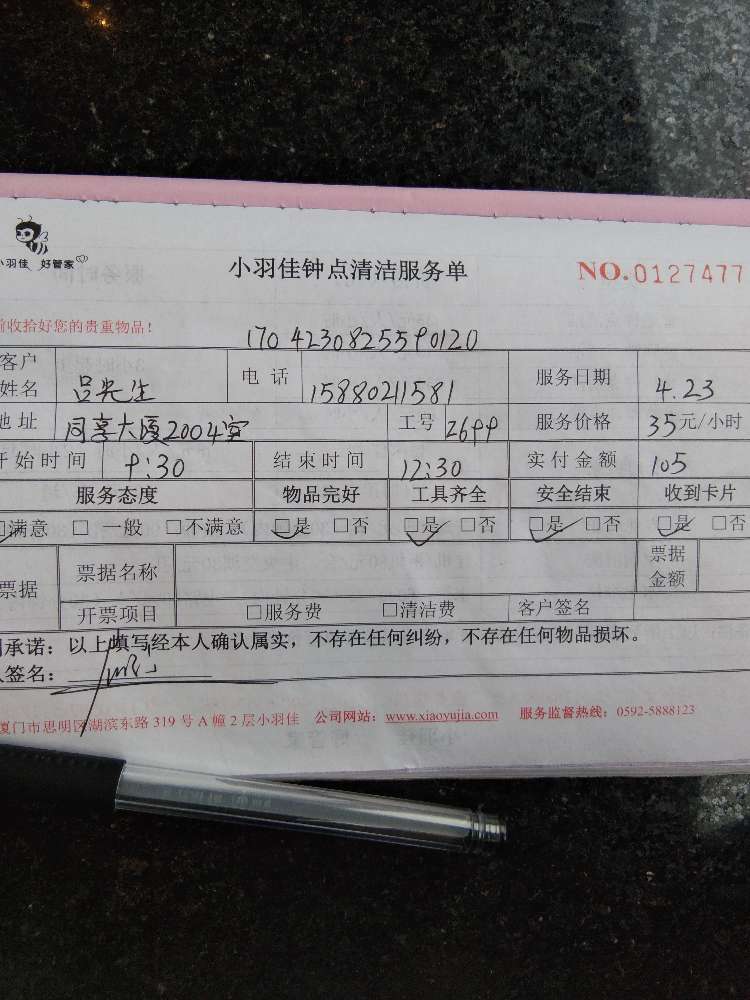 小羽佳 好管家
小羽佳钟点清洁服务单 NO.0127477
前收拾好您的贵重物品！
1704230825590120
客户姓名 吕先生 电话 15880211581 服务日期 4.23
地址 同享大厦2004室 工号 2699 服务价格 35元/小时
开始时间 9:30 结束时间 12:30 实付金额 105
服务态度 物品完好 工具齐全 安全结束 收到卡片
☑满意 □一般 □不满意 ☑是 □否 ☑是 □否 ☑是 □否 ☑是 □否
票据 票据名称 票据金额
开票项目 □服务费 □清洁费 客户签名
承诺：以上填写经本人确认属实，不存在任何纠纷，不存在任何物品损坏。
签名：
厦门市思明区湖滨东路319号A幢2层小羽佳 公司网站：www.xiaoyujia.com 服务监督热线：0592-5888123